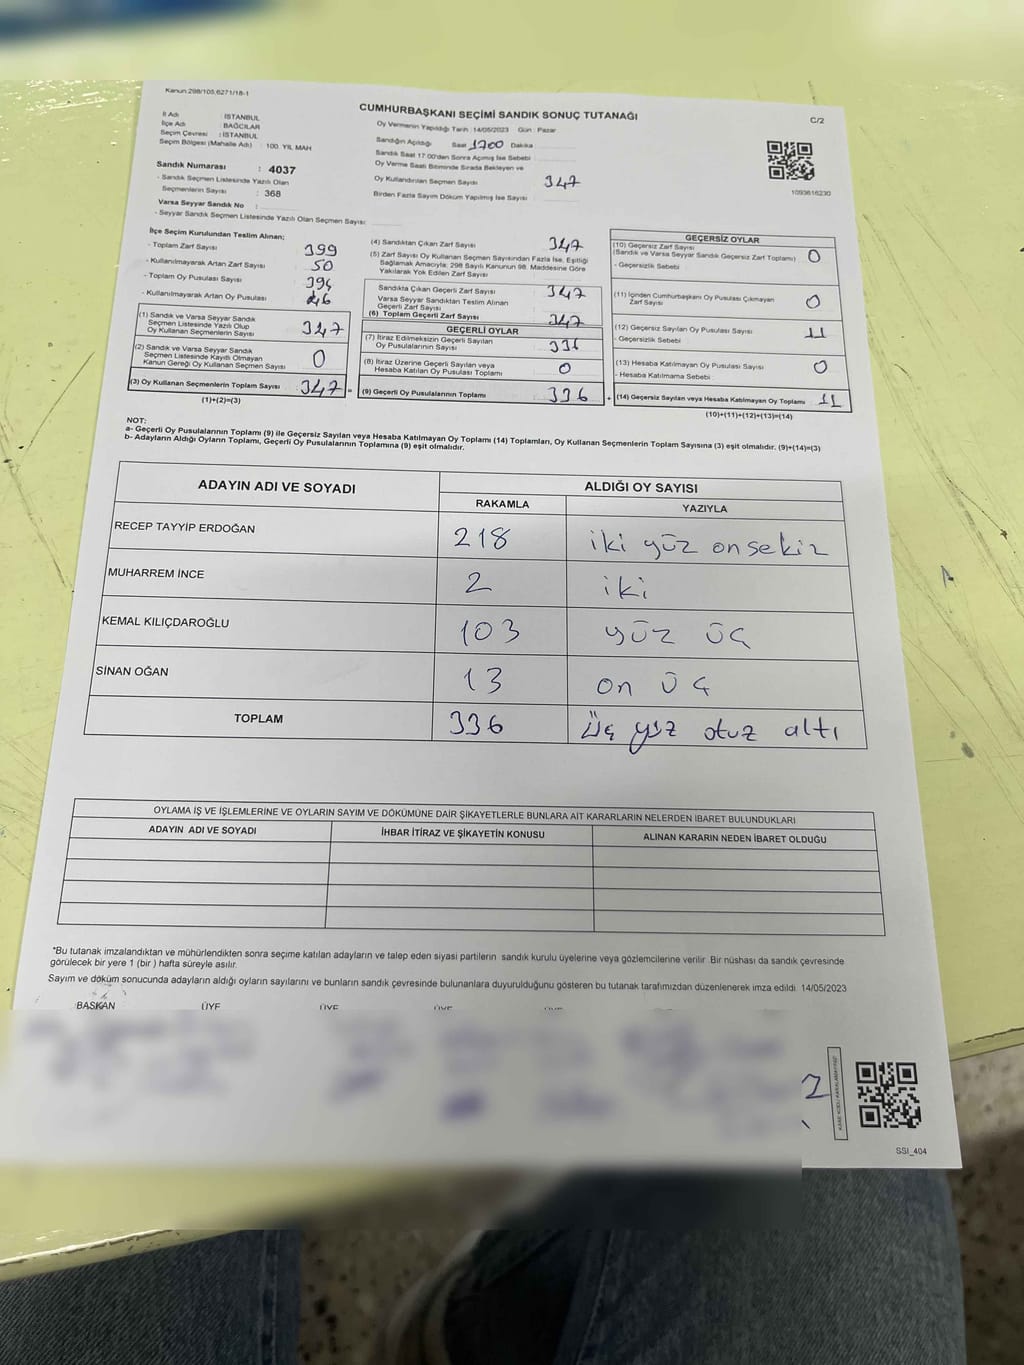 Kanun:298/105,6271/18-1
CUMHURBAŞKANI SEÇİMİ SANDIK SONUÇ TUTANAĞI
C/2
İl Adı : İSTANBUL
İlçe Adı : BAĞCILAR
Seçim Çevresi : İSTANBUL
Seçim Bölgesi (Mahalle Adı) : 100. YIL MAH
Sandık Numarası : 4037
- Sandık Seçmen Listesinde Yazılı Olan
Seçmenlerin Sayısı : 368
Varsa Seyyar Sandık No :
- Seyyar Sandık Seçmen Listesinde Yazılı Olan Seçmen Sayısı:
Oy Vermenin Yapıldığı Tarih :14/05/2023 Gün : Pazar
Sandığın Açıldığı Saat 1700 Dakika
Sandık Saat 17:00'den Sonra Açılmış İse Sebebi
Oy Verme Saati Bitiminde Sırada Bekleyen ve
Oy Kullandırılan Seçmen Sayısı 347
Birden Fazla Sayım Döküm Yapılmış İse Sayısı
1093616230
İlçe Seçim Kurulundan Teslim Alınan;
- Toplam Zarf Sayısı 399
- Kullanılmayarak Artan Zarf Sayısı 50
- Toplam Oy Pusulası Sayısı 394
- Kullanılmayarak Artan Oy Pusulası
(1) Sandık ve Varsa Seyyar Sandık
Seçmen Listesinde Yazılı Olup
Oy Kullanan Seçmenlerin Sayısı 347
(2) Sandık ve Varsa Seyyar Sandık
Seçmen Listesinde Kayıtlı Olmayan
Kanun Gereği Oy Kullanan Seçmen Sayısı 0
(3) Oy Kullanan Seçmenlerin Toplam Sayısı 347 =
(1)+(2)=(3)
(4) Sandıktan Çıkan Zarf Sayısı 347
(5) Zarf Sayısı Oy Kullanan Seçmen Sayısından Fazla İse, Eşitliği
Sağlamak Amacıyla; 298 Sayılı Kanunun 98. Maddesine Göre
Yakılarak Yok Edilen Zarf Sayısı
Sandıkta Çıkan Geçerli Zarf Sayısı 347
Varsa Seyyar Sandıktan Teslim Alınan
Geçerli Zarf Sayısı
(6) Toplam Geçerli Zarf Sayısı 347
GEÇERLİ OYLAR
(7) İtiraz Edilmeksizin Geçerli Sayılan
Oy Pusulalarının Sayısı 336
(8) İtiraz Üzerine Geçerli Sayılan veya
Hesaba Katılan Oy Pusulası Toplamı 0
(9) Geçerli Oy Pusulalarının Toplamı 336 +
GEÇERSİZ OYLAR
(10) Geçersiz Zarf Sayısı
(Sandık ve Varsa Seyyar Sandık Geçersiz Zarf Toplamı) 0
- Geçersizlik Sebebi
(11) İçinden Cumhurbaşkanı Oy Pusulası Çıkmayan
Zarf Sayısı 0
(12) Geçersiz Sayılan Oy Pusulası Sayısı 11
- Geçersizlik Sebebi
(13) Hesaba Katılmayan Oy Pusulası Sayısı 0
- Hesaba Katılmama Sebebi
(14) Geçersiz Sayılan veya Hesaba Katılmayan Oy Toplamı 11
(10)+(11)+(12)+(13)=(14)
NOT:
a- Geçerli Oy Pusulalarının Toplamı (9) ile Geçersiz Sayılan veya Hesaba Katılmayan Oy Toplamı (14) Toplamları, Oy Kullanan Seçmenlerin Toplam Sayısına (3) eşit olmalıdır. (9)+(14)=(3)
b- Adayların Aldığı Oyların Toplamı, Geçerli Oy Pusulalarının Toplamına (9) eşit olmalıdır.
ADAYIN ADI VE SOYADI ALDIĞI OY SAYISI
RAKAMLA YAZIYLA
RECEP TAYYİP ERDOĞAN 218 iki yüz on sekiz
MUHARREM İNCE 2 iki
KEMAL KILIÇDAROĞLU 103 yüz üç
SİNAN OĞAN 13 on üç
TOPLAM 336 üç yüz otuz altı
OYLAMA İŞ VE İŞLEMLERİNE VE OYLARIN SAYIM VE DÖKÜMÜNE DAİR ŞİKAYETLERLE BUNLARA AİT KARARLARIN NELERDEN İBARET BULUNDUKLARI
ADAYIN ADI VE SOYADI İHBAR İTİRAZ VE ŞİKAYETİN KONUSU ALINAN KARARIN NEDEN İBARET OLDUĞU
*Bu tutanak imzalandıktan ve mühürlendikten sonra seçime katılan adayların ve talep eden siyasi partilerin sandık kurulu üyelerine veya gözlemcilerine verilir. Bir nüshası da sandık çevresinde
görülecek bir yere 1 (bir ) hafta süreyle asılır.
Sayım ve döküm sonucunda adayların aldığı oyların sayılarını ve bunların sandık çevresinde bulunanlara duyurulduğunu gösteren bu tutanak tarafımızdan düzenlenerek imza edildi. 14/05/2023
BAŞKAN ÜYE ÜYE ÜYE
SSI_404